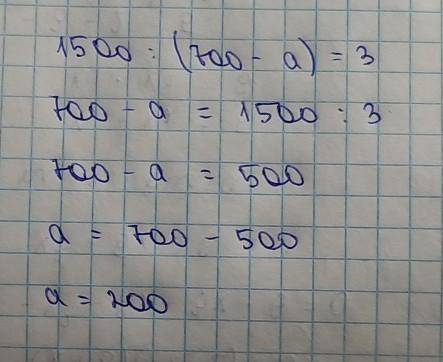 1500 : (700 - a) = 3
700 - a = 1500 : 3
700 - a = 500
a = 700 - 500
a = 200